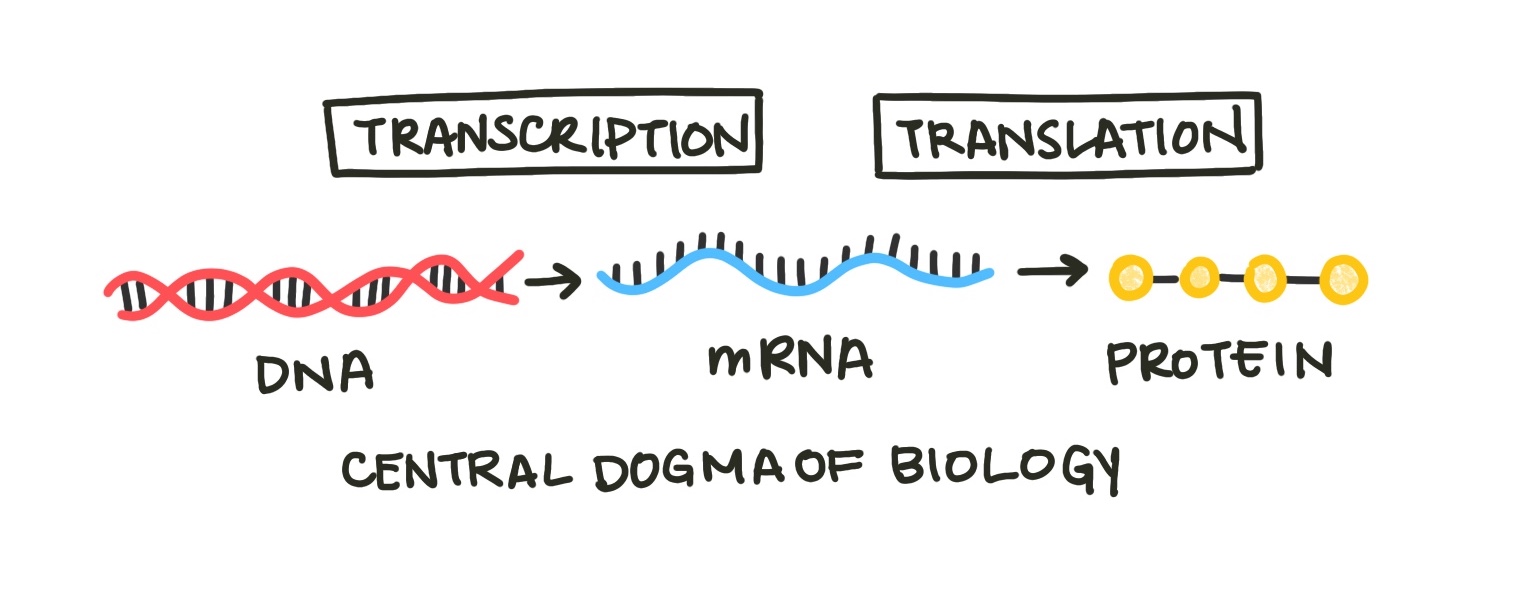 TRANSCRIPTION
TRANSLATION
DNA
mRNA
PROTEIN
CENTRAL DOGMA OF BIOLOGY